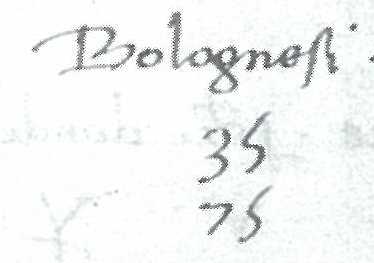 Bologneſi.
35
75